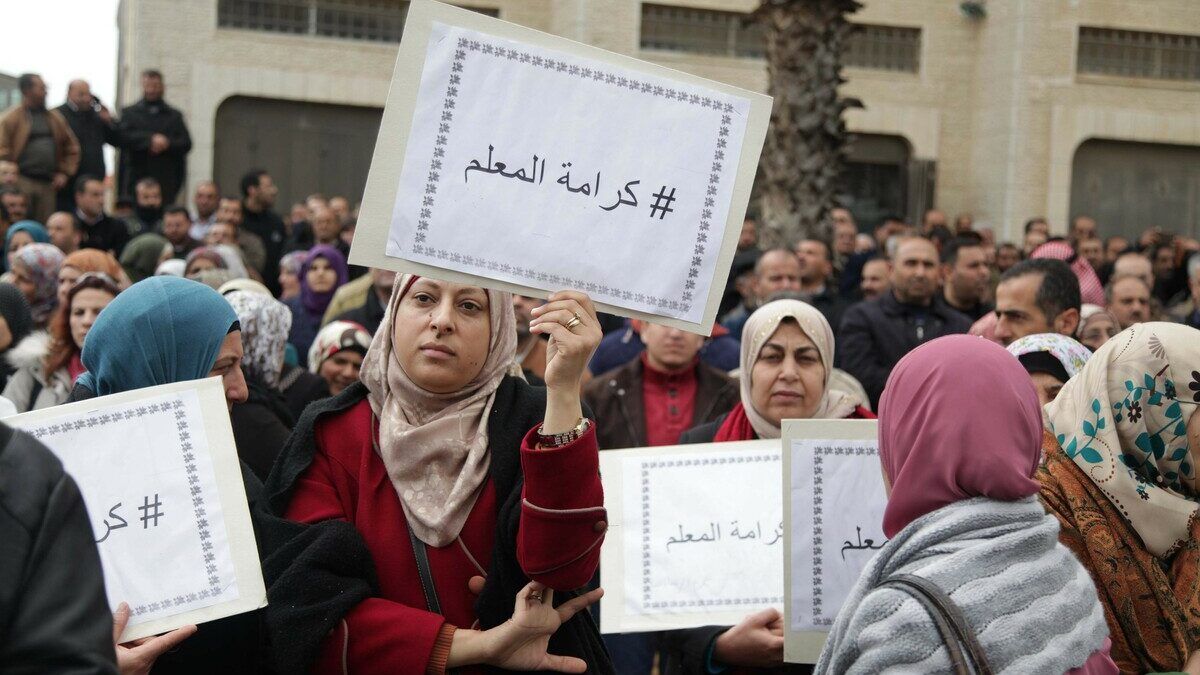 # كرامة المعلم
# كر
كرامة المعلم #
المعلم